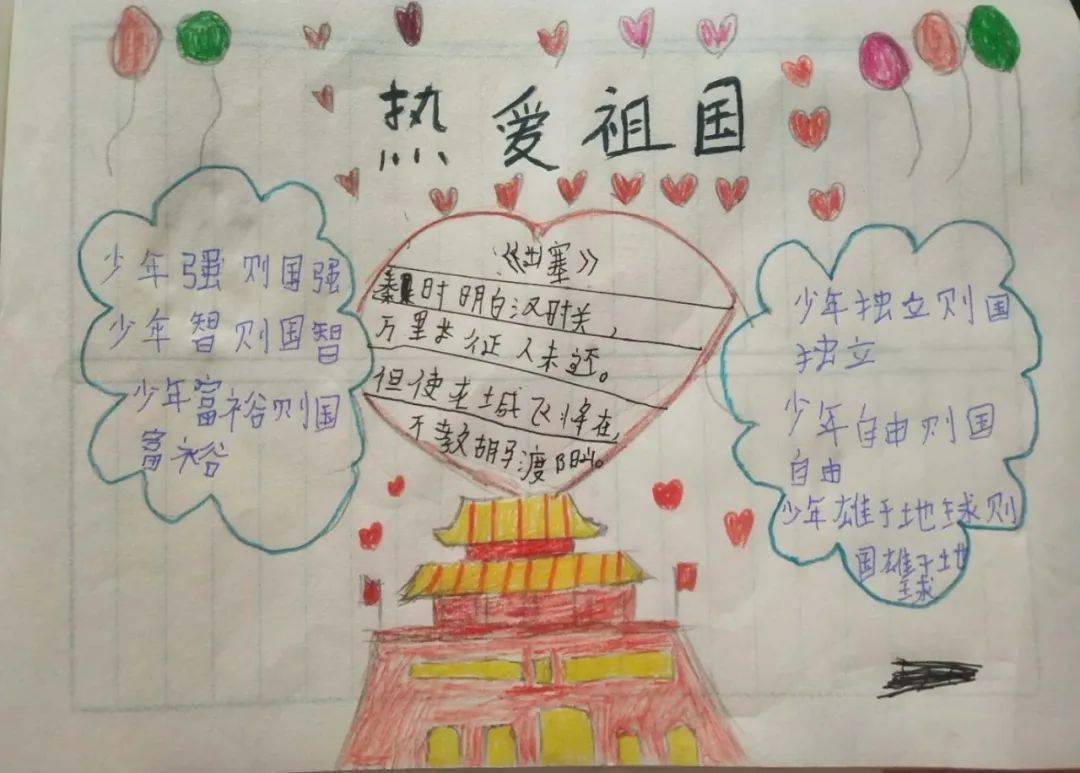 热爱祖国
少年强则国强
少年智则国智
少年富裕则国
富裕
《出塞》
秦时明白汉时关，
万里长征人未还。
但使龙城飞将在，
不教胡马渡阴山。
少年独立则国
独立
少年自由则国
自由
少年雄于地球则
国雄于地
球